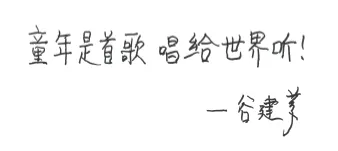 童年是首歌 唱给世界听!
—谷建芬